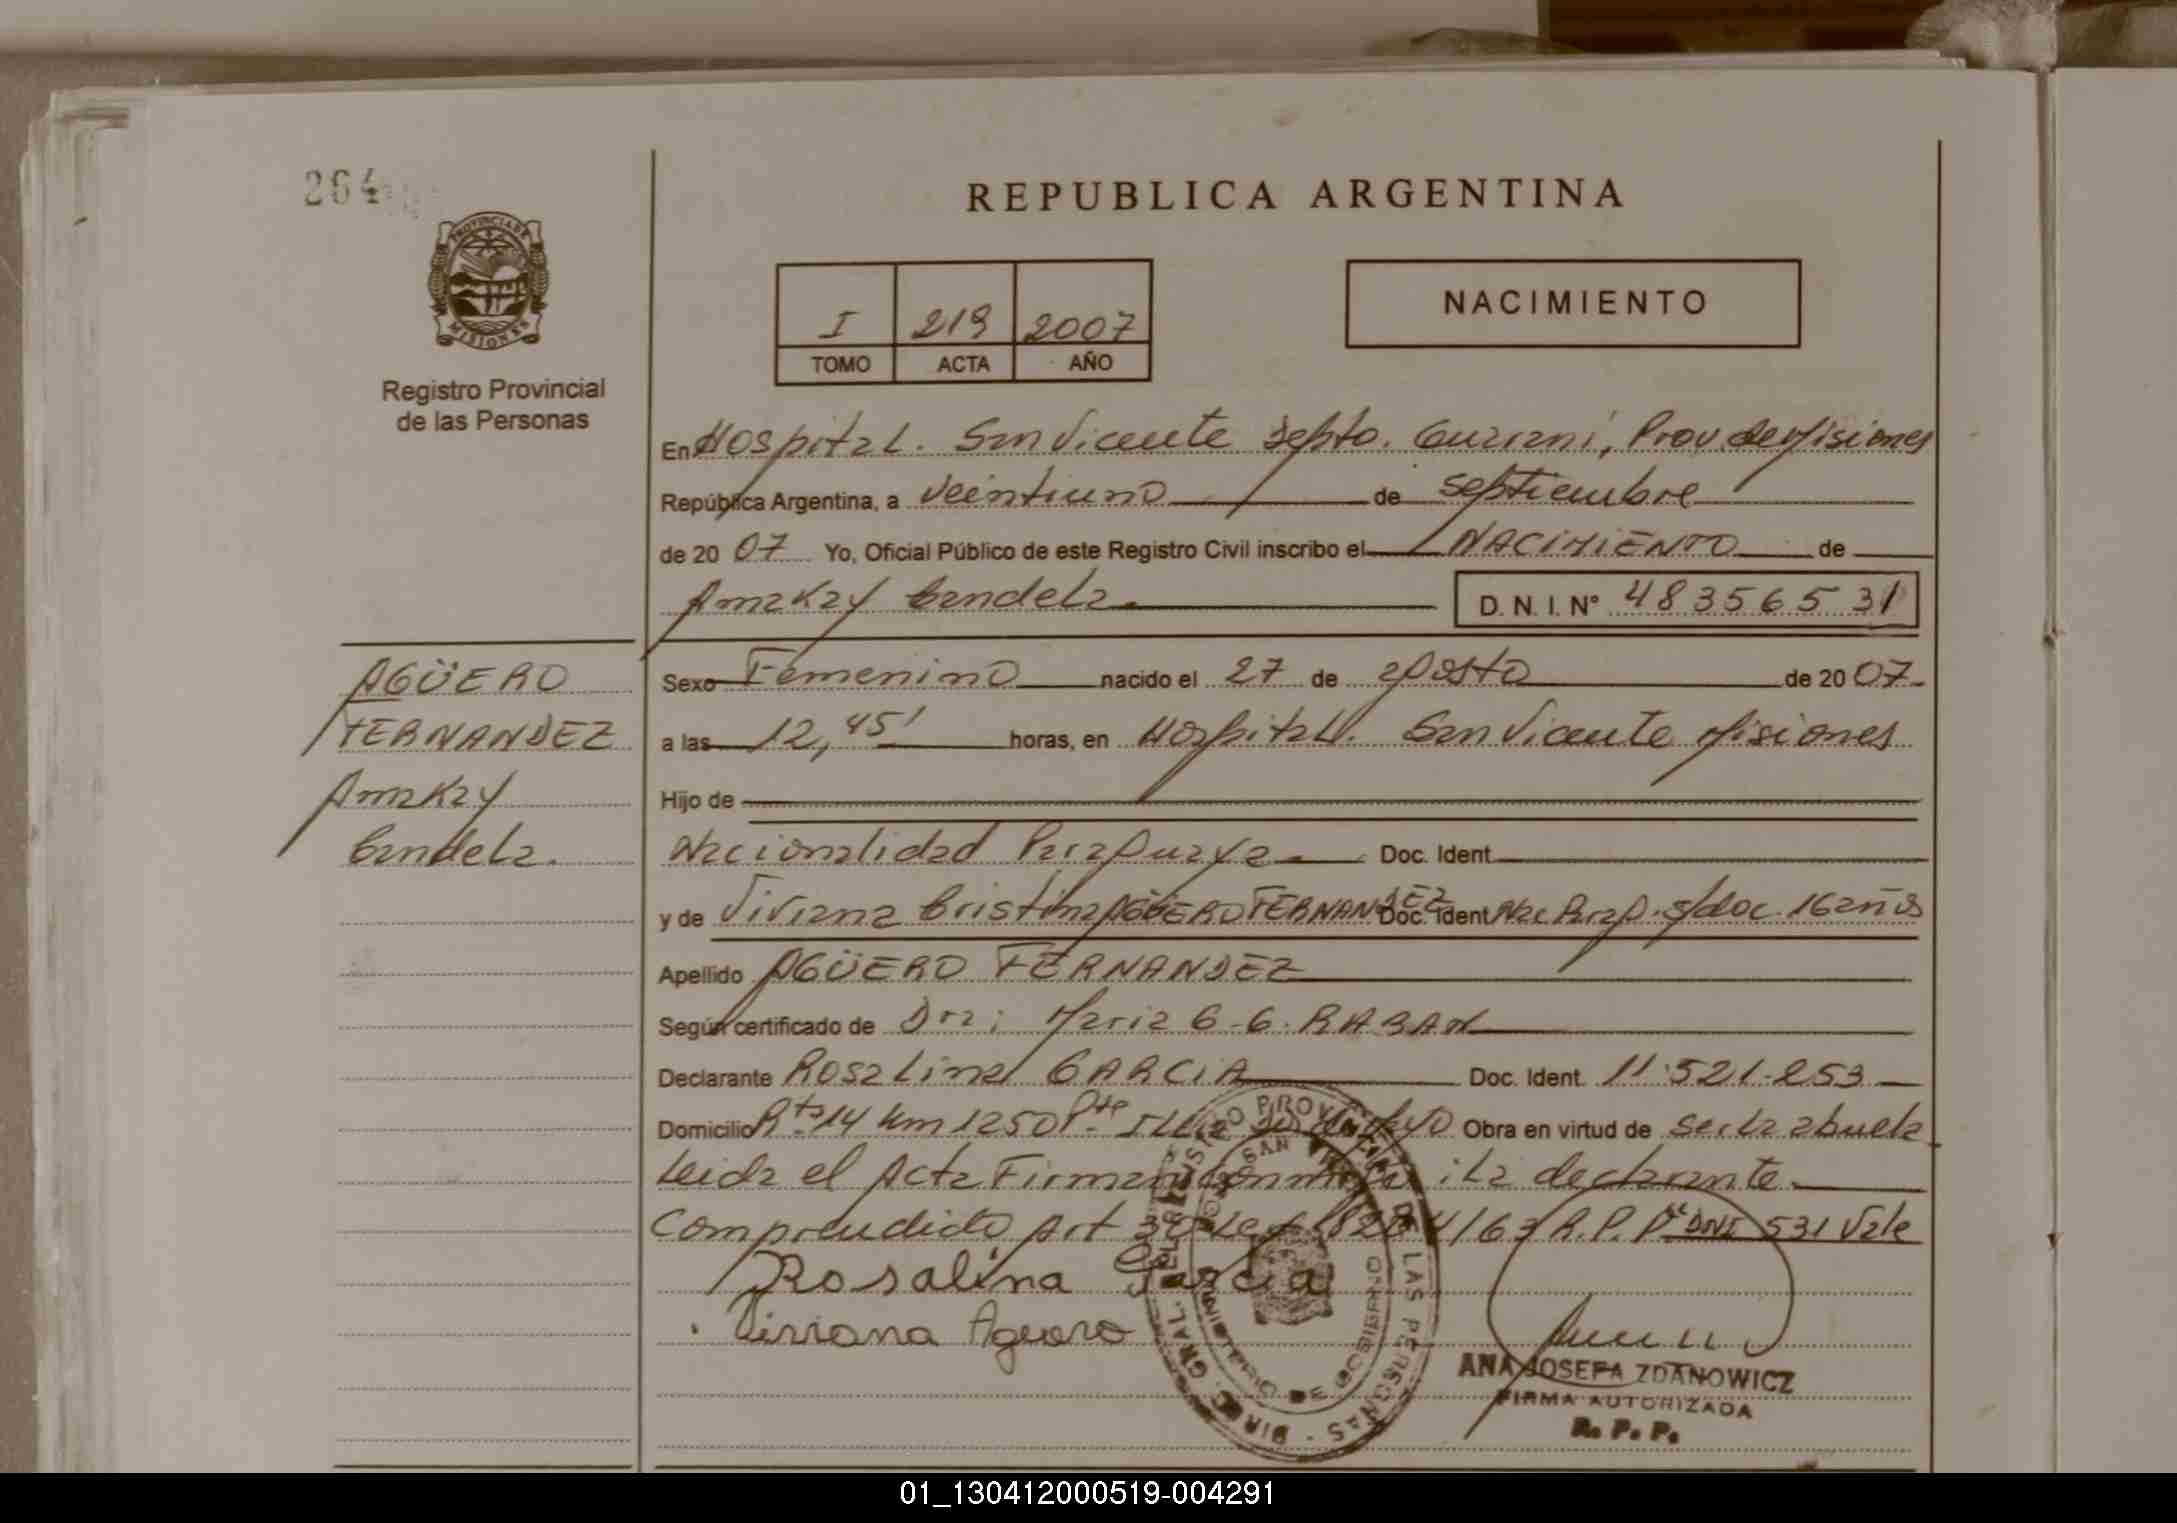 264
PROVINCIA DE
MISIONES
Registro Provincial
de las Personas
REPUBLICA ARGENTINA
I 219 2007
TOMO ACTA AÑO
NACIMIENTO
En Hospital. San Vicente Depto. Guaraní, Prov. de Misiones
República Argentina, a veintiuno de septiembre
de 2007 Yo, Oficial Público de este Registro Civil inscribo el NACIMIENTO de
Amakay Candela. D. N. I. N° 48356531
AGÜERO
FERNANDEZ
Amakay
Candela.
Sexo Femenino nacido el 27 de agosto de 2007
a las 12,45' horas, en Hospital. San Vicente Misiones
Hijo de
Nacionalidad Paraguaya Doc. Ident
y de Viviana Cristina AGÜERO FERNANDEZ Doc. Ident Nac Parag. s/doc. 16 años
Apellido AGÜERO FERNANDEZ
Según certificado de Dra: Maria G. G. RABAN
Declarante Rosalina GARCIA Doc. Ident. 11.521.253
Domicilio Rta 14 Km 1250 Pte Obra en virtud de ser la abuela
Leida el Acta Firman conmigo i la declarante.
Comprendido Art 30 Ley 4/63 R.P.P. DNI 531 Vale
Rosalina Garcia
Viviana Aguero
ANA JOSEFA ZDANOWICZ
FIRMA AUTORIZADA
R. P. P.
01_130412000519-004291